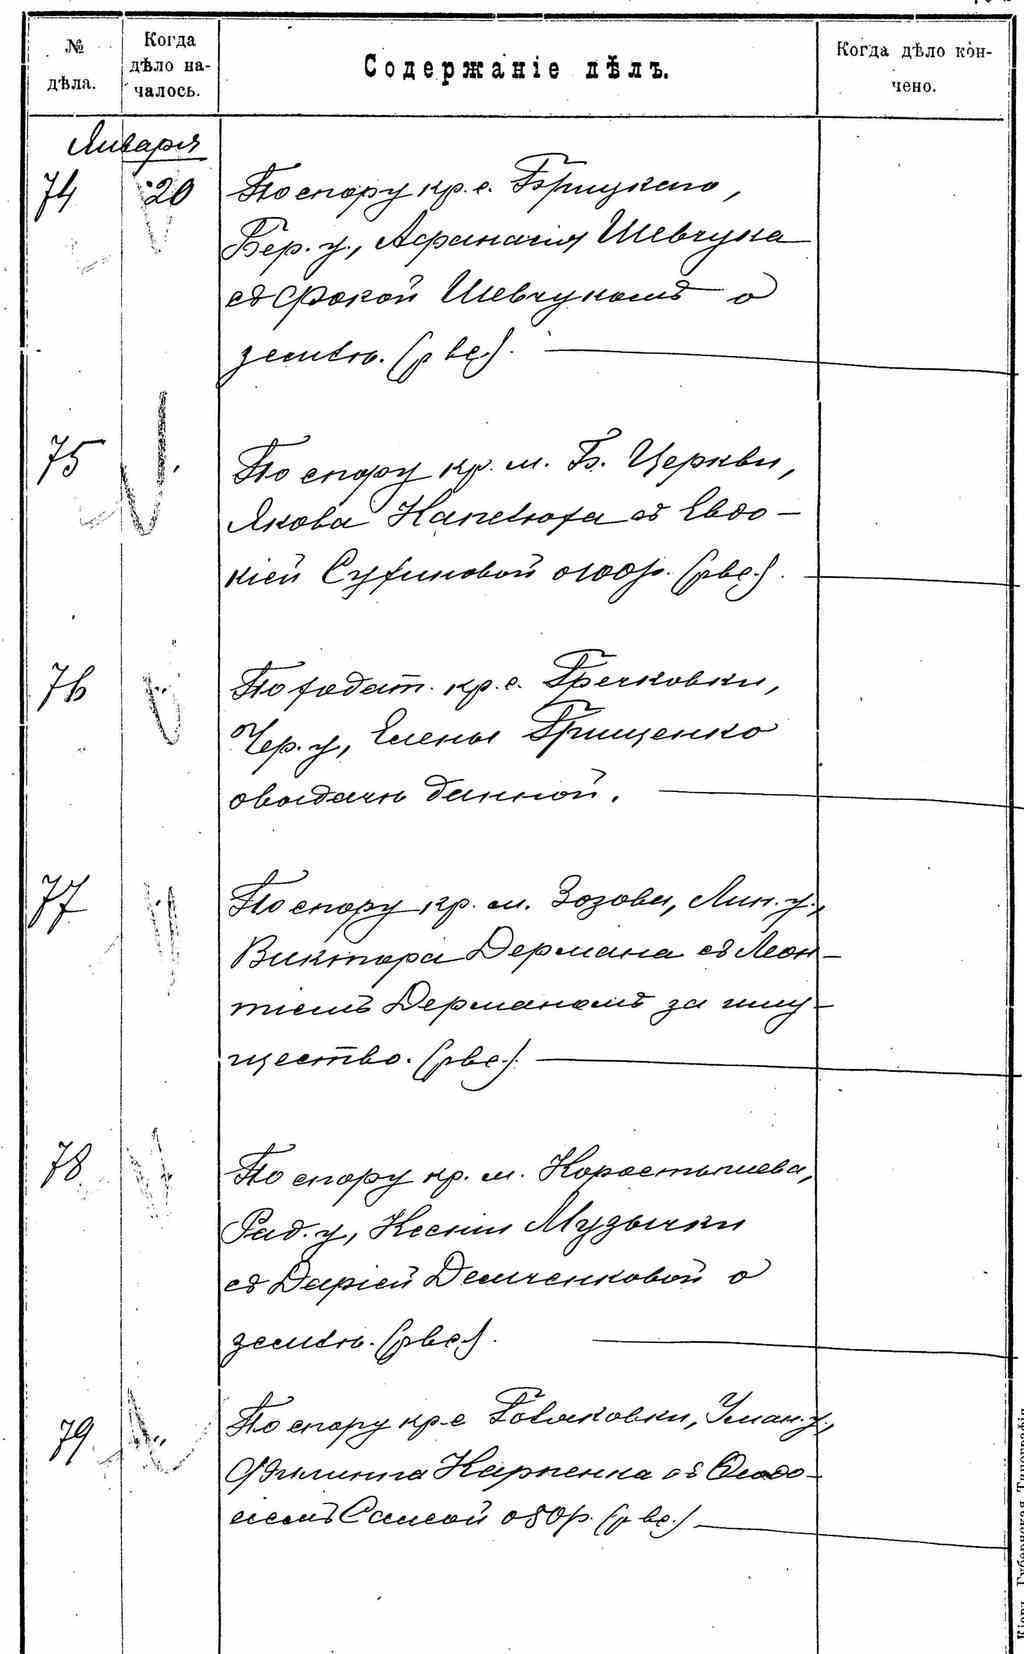 № дѣла.
Когда дѣло началось.
Содержаніе дѣлъ.
Когда дѣло кончено.
Января
74 20 По спору кр. с. Грицкаго,
Бер. у., Афанасія Шевчука
съ Фокой Шевчукомъ о
землѣ. (рве.).
75 По спору кр. м. Б. Церкви,
Якова съ Евдо-
кіей о 100 р. (рве.).
76 По ходат. кр. с. Гречковки,
Чер. у., Елены Грищенко
о выдачѣ данной.
77 По спору кр. м. Зозова, Лип. у.,
Виктора Дермана съ Леон-
тіемъ Дерманомъ за иму-
щество. (рве.).
78 По спору кр. м. Коростышева,
Рад. у., Ксеніи Музычки
съ Даріей Демченковой о
землѣ. (рве.).
79 По спору кр. с. Уман. у.,
Филиппа Карпенка съ Ѳеодо-
сіемъ о 80 р. (рве.)
Кіевъ. Губернская Типографія